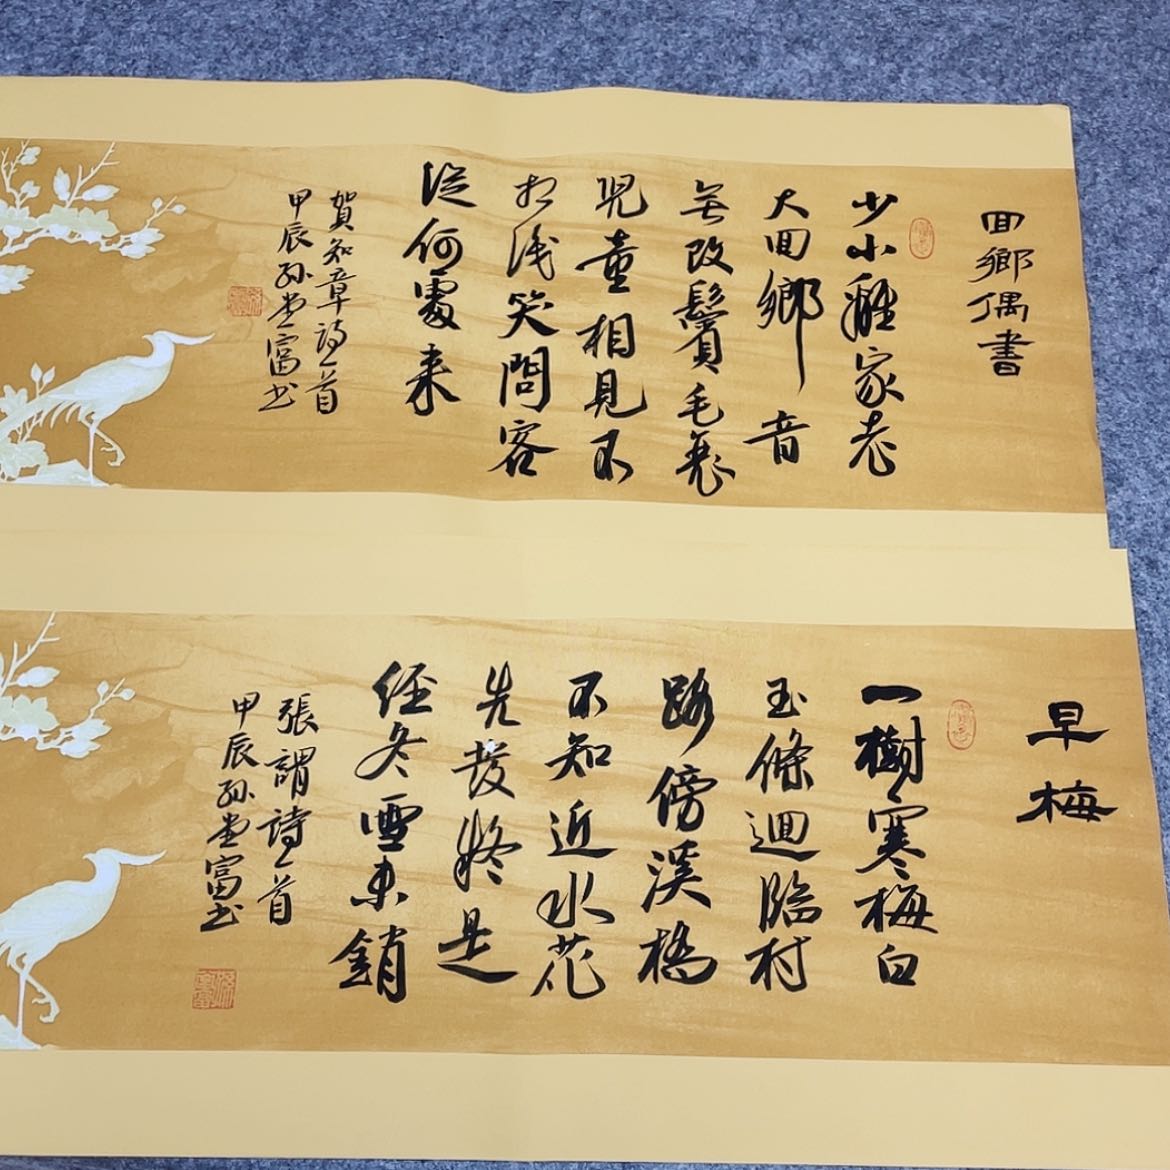 回鄉偶書
少小離家老
大回鄉音
無改鬢毛衰
兒童相見不
相識笑問客
從何處來
賀知章詩一首
甲辰孫堂富书
早梅
一樹寒梅白
玉條迴臨村
路傍溪橋
不知近水花
先發疑是
經冬雪未銷
張謂詩一首
甲辰孫堂富书